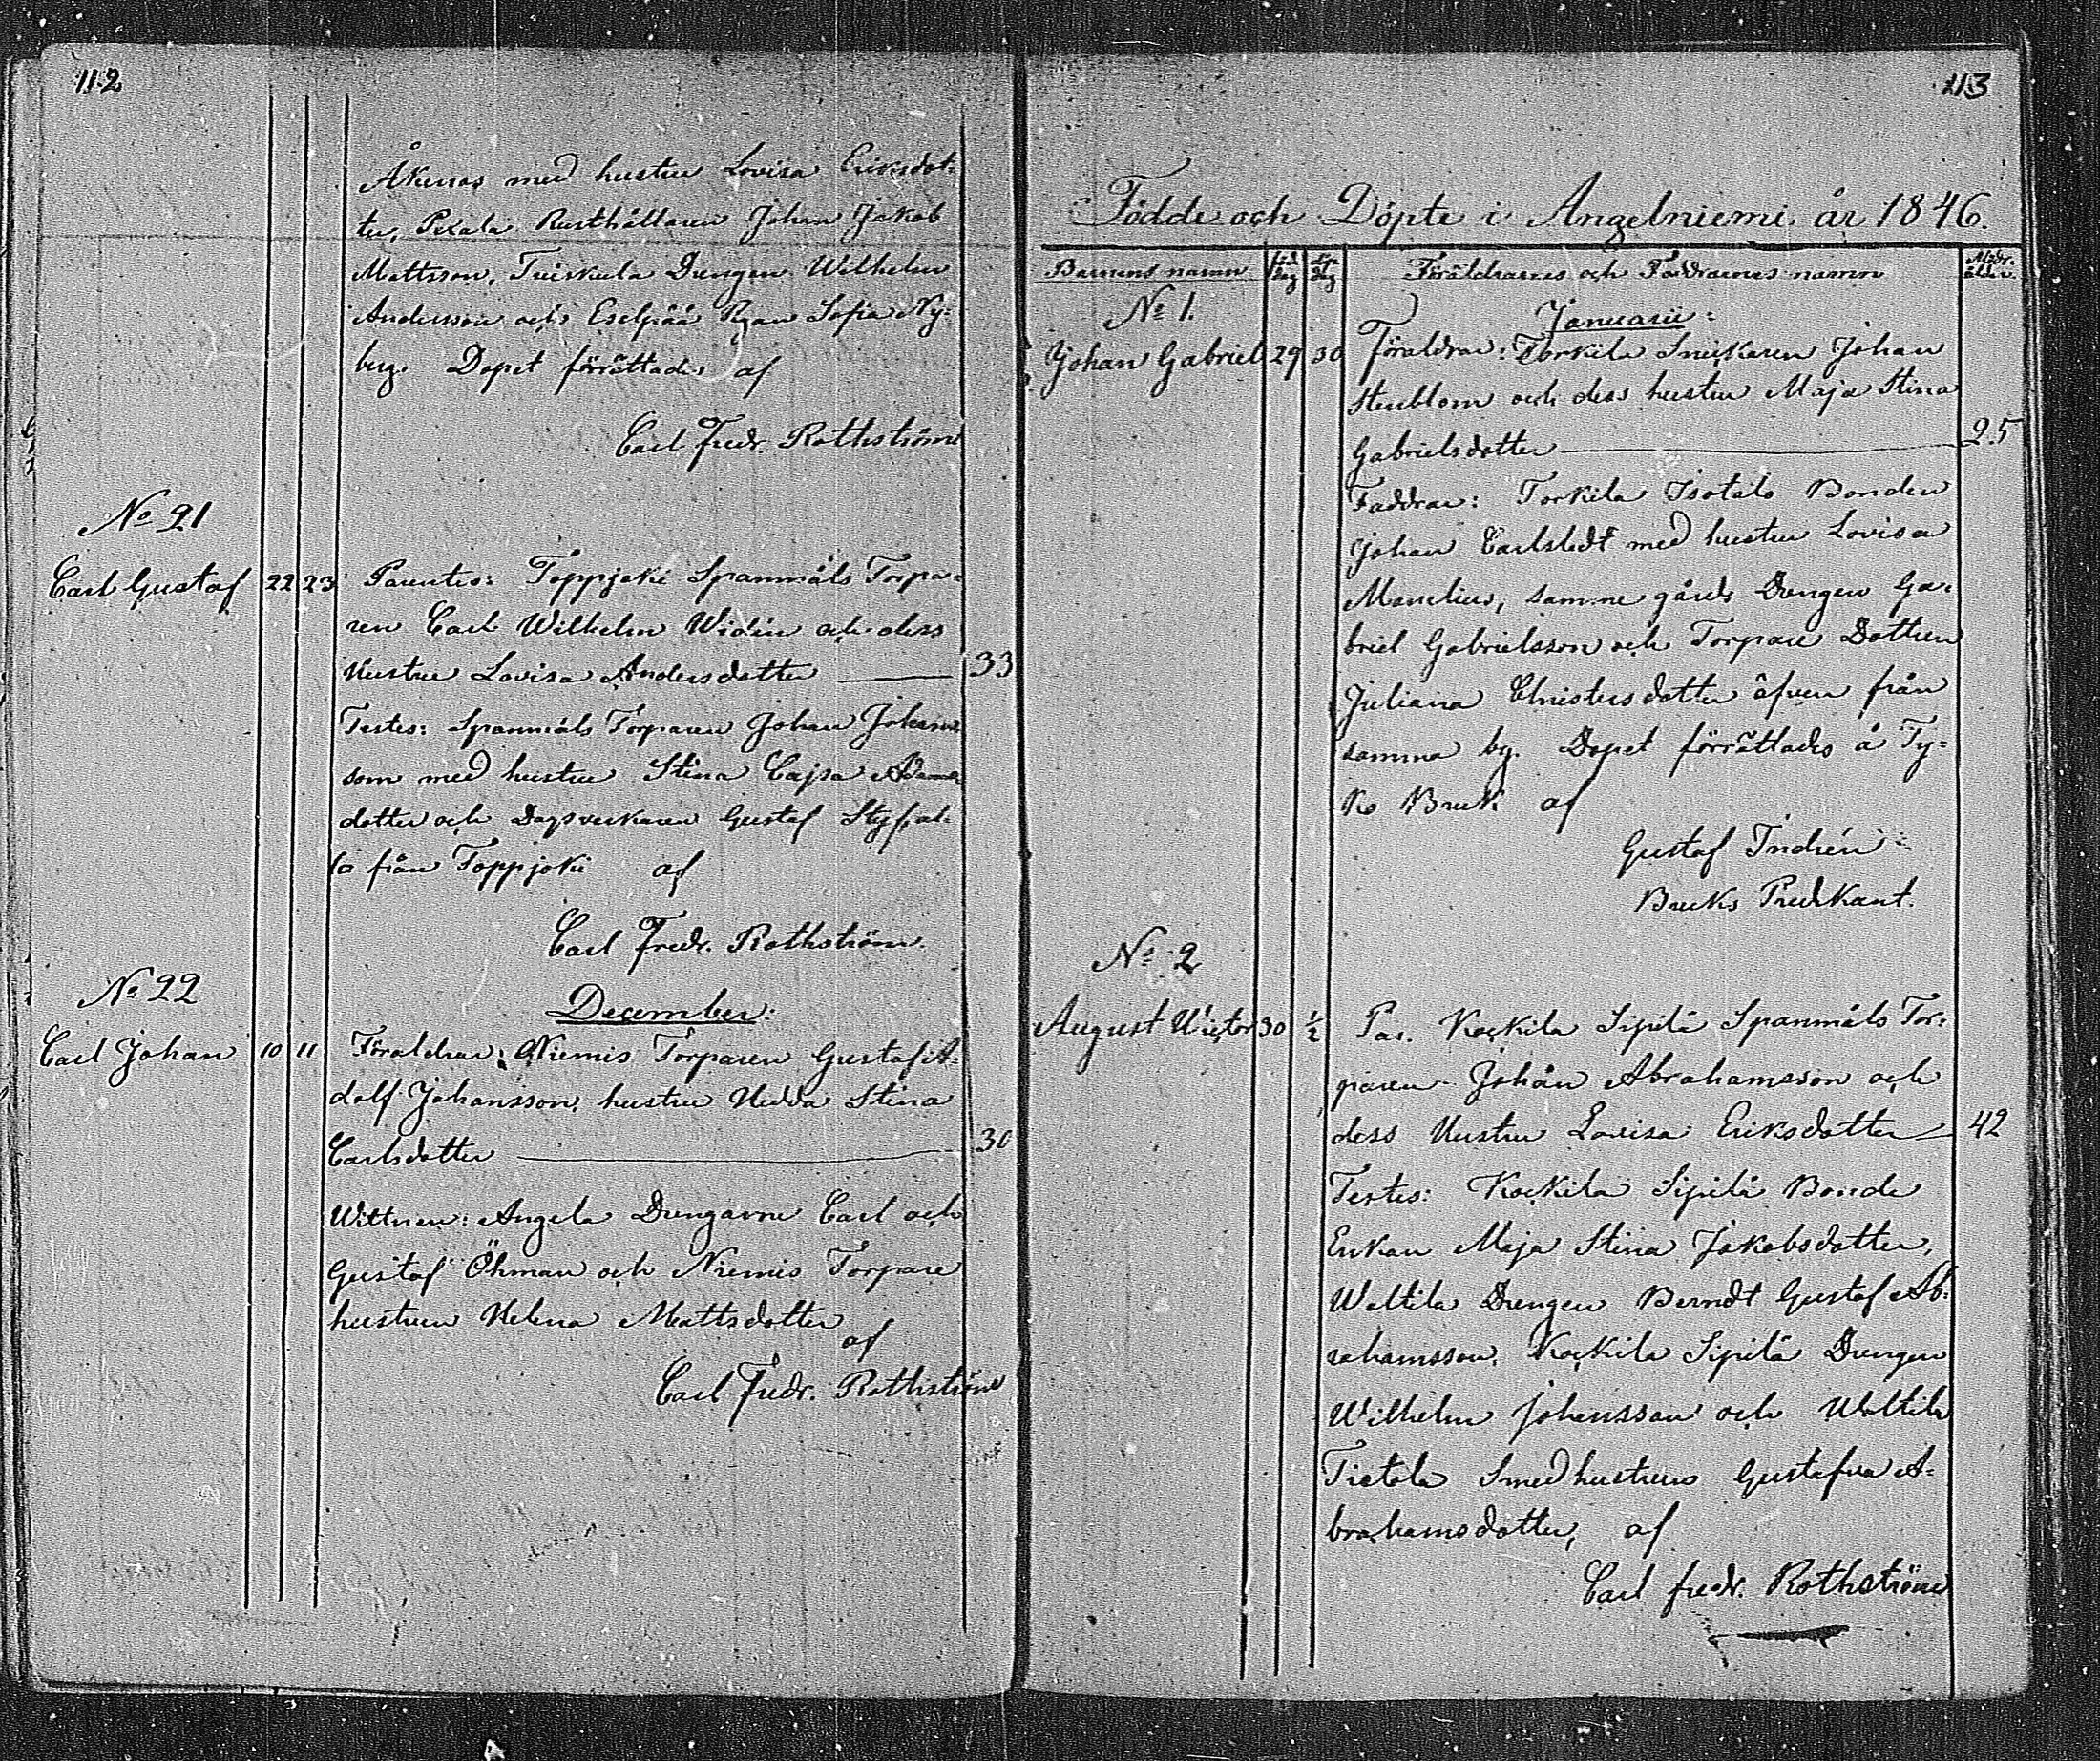 112
Åkerros med hustru Lovisa Eriksdot=
ter, Pexala Rusthållaren Johan Jakob
Mattsson, Tuiskula Drengen Wilhelm
Andersson och Eselpää Pigan Sofia Ny=
berg. Dopet förrättades af
Carl Fredr. Rothström
No 21
Carl Gustaf 22 23 Parentes: Toppjoki Spanmåls Torpa=
ren Carl Wilhelm Widén och dess
Hustru Lovisa Andersdotter 33
Testes: Spanmåls Torparen Johan Johans
son med hustru Stina Cajsa Adams
dotter och Dagsverkaren Gustaf
från Toppjoki af
Carl Fredr. Rothström.
No 22
December:
Carl Johan 10 11 Föräldrar: Niemis Torparen Gustaf A=
dolf Johansson, hustru Hedda Stina
Carlsdotter 30
Wittnen: Angela Drengarne Carl och
Gustaf Öhman och Niemis Torpare
hustrun Helena Mattsdotter
af
Carl Fredr. Rothström
113
Födde och Döpte i Angelniemi år 1846.
Barnens namn föd. dag döp. dag Föräldrarnes och Faddrarnes namn Modr. ålder
No 1.
Januarii:
Johan Gabriel 29 30 Föräldrar: Torkila Snickaren Johan
Stenblom och dess hustru Maja Stina
Gabrielsdotter 25
Faddrar: Torkila Isotalo Bonden
Johan Carlstedt med hustru Lovisa
Manelius, samme gårds Drengen Ga=
briel Gabrielsson och Torpare Dottren
Juliana Christersdotter äfven från
samma by. Dopet förrättades å Ty=
ko Bruk af
Gustaf Indrén
Bruks Predikant.
No 2
August Victor 30 ½ Par. Kokkila Sipilä Spanmåls Tor=
paren Johan Abrahamsson och
dess Hustru Lovisa Eriksdotter 42
Testes: Kokkila Sipilä Bonde
Enkan Maja Stina Jakobsdotter,
Waltila Drengen Berndt Gustaf Ab=
rahamsson, Kokkila Sipilä Drengen
Wilhelm Johansson och Waltila
Tietola Smedhustrun Gustafva A=
brahamsdotter, af
Carl Fredr. Rothström